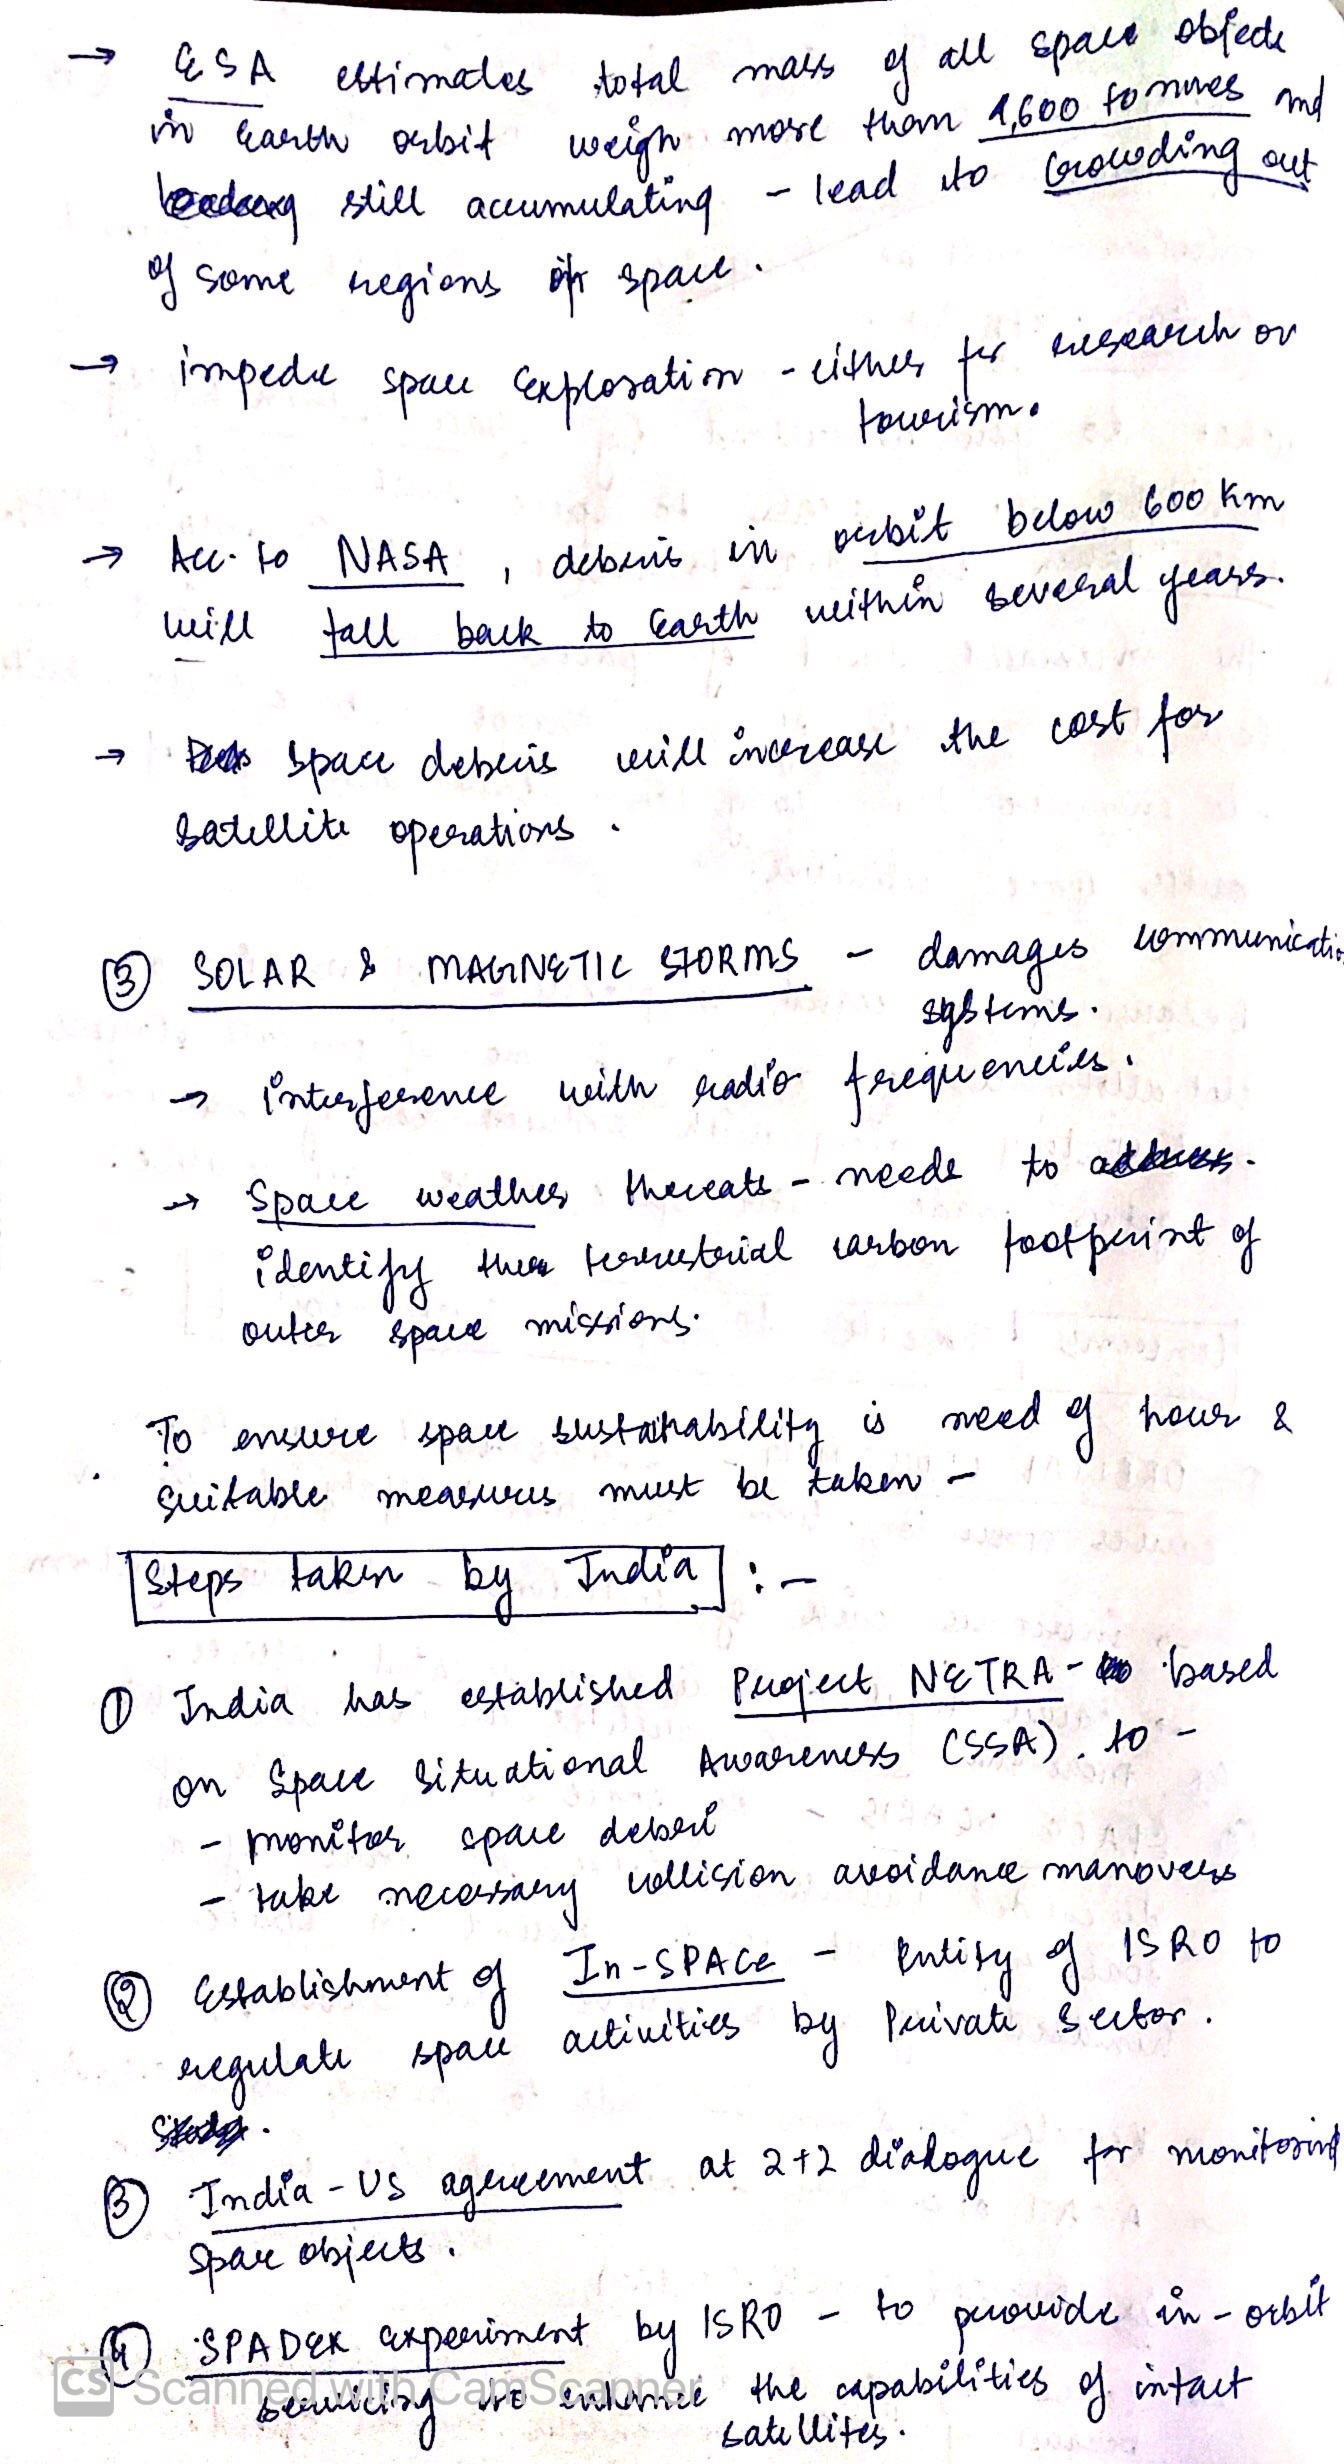 → ESA estimates total mass of all space objects
in Earth orbit weigh more than 1,600 tonnes and
still accumulating - lead to Crowding out
of some regions of space.
→ impede space Exploration - either for research or
tourism.
→ Acc. to NASA, debris in orbit below 600 Km
will fall back to Earth within several years.
→ space debris will increase the cost for
satellite operations.
③ SOLAR & MAGNETIC STORMS - damages communicatio
systems.
→ interference with radio frequencies.
→ Space weather threats - needs to
identify the terrestrial carbon footprint of
outer space missions.
To ensure space sustainability is need of hour &
suitable measures must be taken -
Steps taken by India :-
① India has established Project NETRA - based
on Space Situational Awareness (SSA). to -
- monitor space debri
- take necessary collision avoidance manovers
② Establishment of In-SPACe - Entity of ISRO to
regulate space activities by Private Sector.
③ India-US agreement at 2+2 dialogue for monitoring
space objects.
④ SPADEX experiment by ISRO - to provide in-orbit
servicing to enhance the capabilities of intact
satellites.
CS Scanned with CamScanner